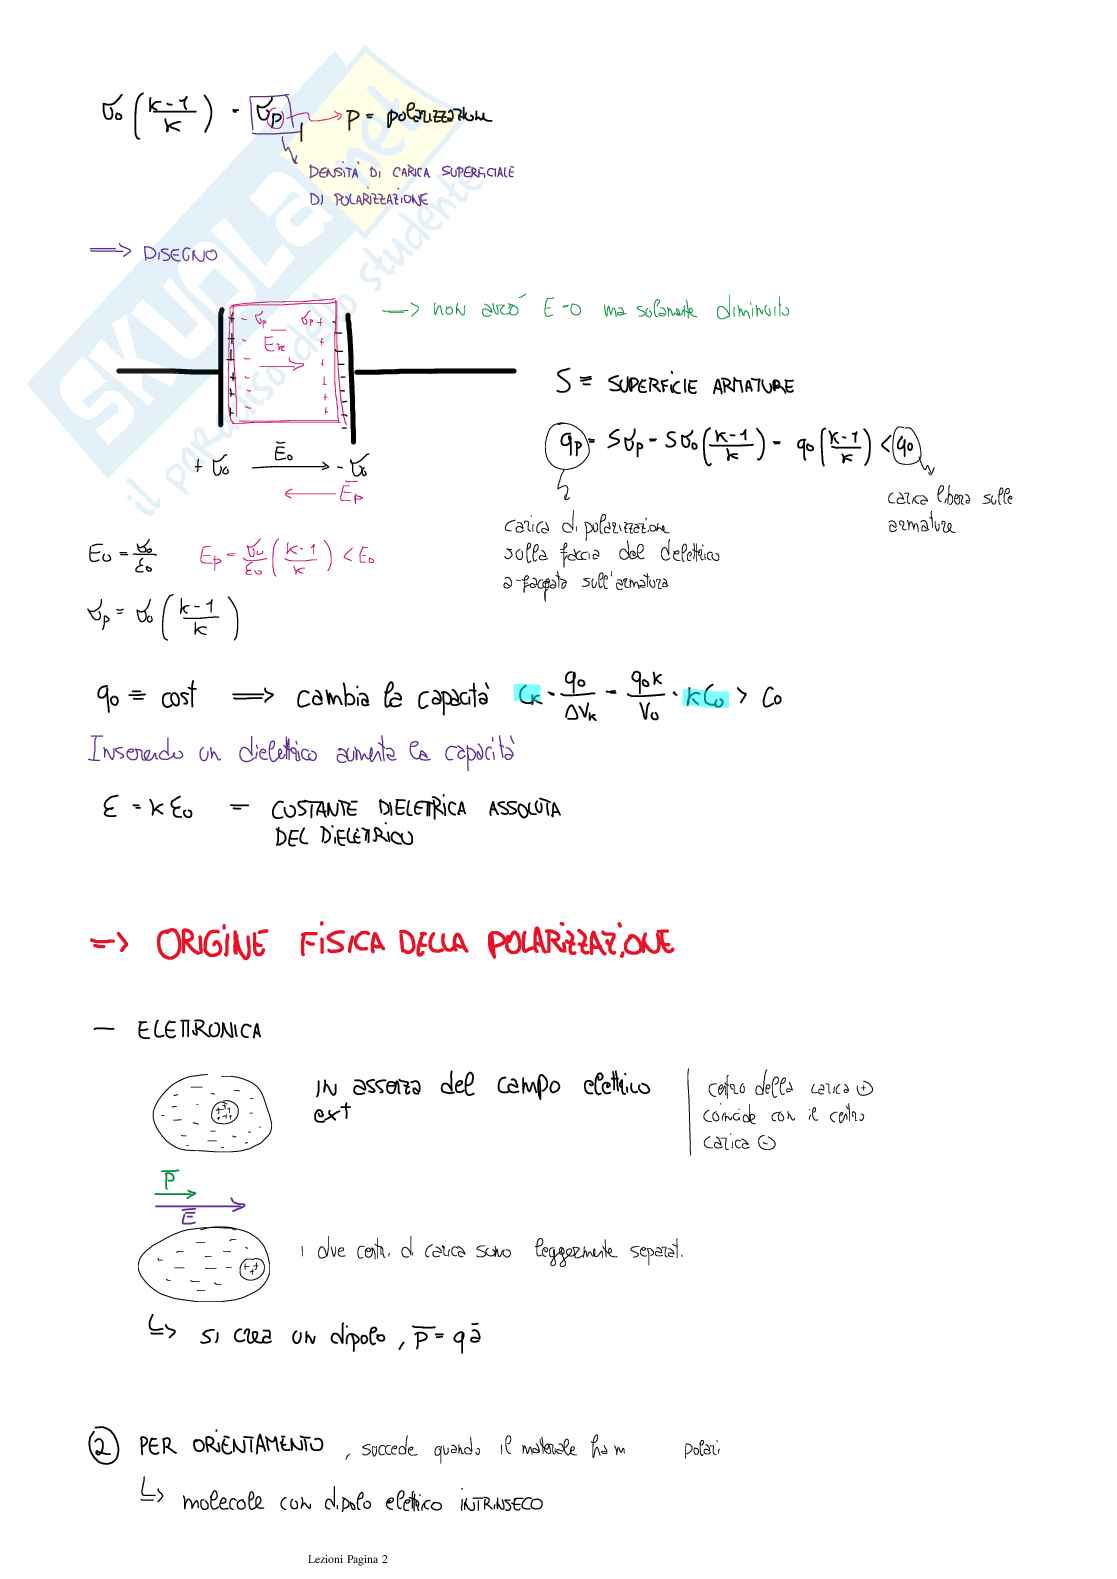 σ₀ (k-1/k) = σp → p = polarizzazione
DENSITÀ DI CARICA SUPERFICIALE
DI POLARIZZAZIONE
SKUOLA.net
il paradiso dello studente
⟹ DISEGNO
→ non avrò E=0 ma solamente diminuito
- σp σp +
Eₖ
S = SUPERFICIE ARMATURE
qp = Sσp = Sσ₀ (k-1/k) = q₀ (k-1/k) < q₀
+ σ₀ E̅₀ - σ₀
E̅p
carica libera sulle
armature
carica di polarizzazione
sulla faccia del dielettrico
affacciata sull'armatura
E₀ = σ₀/ε₀ Ep = σ₀/ε₀ (k-1/k) < E₀
σp = σ₀ (k-1/k)
q₀ = cost ⟹ cambia la capacità Cₖ = q₀/ΔVₖ = q₀k/V₀ = kC₀ > C₀
Inserendo un dielettrico aumenta la capacità
ε = kε₀ = COSTANTE DIELETTRICA ASSOLUTA
DEL DIELETTRICO
=> ORIGINE FISICA DELLA POLARIZZAZIONE
- ELETTRONICA
IN assenza del campo elettrico
ext
centro della carica ⊕
coincide con il centro
carica ⊖
P̅
E̅
i due centri di carica sono leggermente separati
↳ si crea un dipolo, P̅ = qa̅
② PER ORIENTAMENTO, succede quando il materiale ha m polari
↳ molecole con dipolo elettrico INTRINSECO
Lezioni Pagina 2